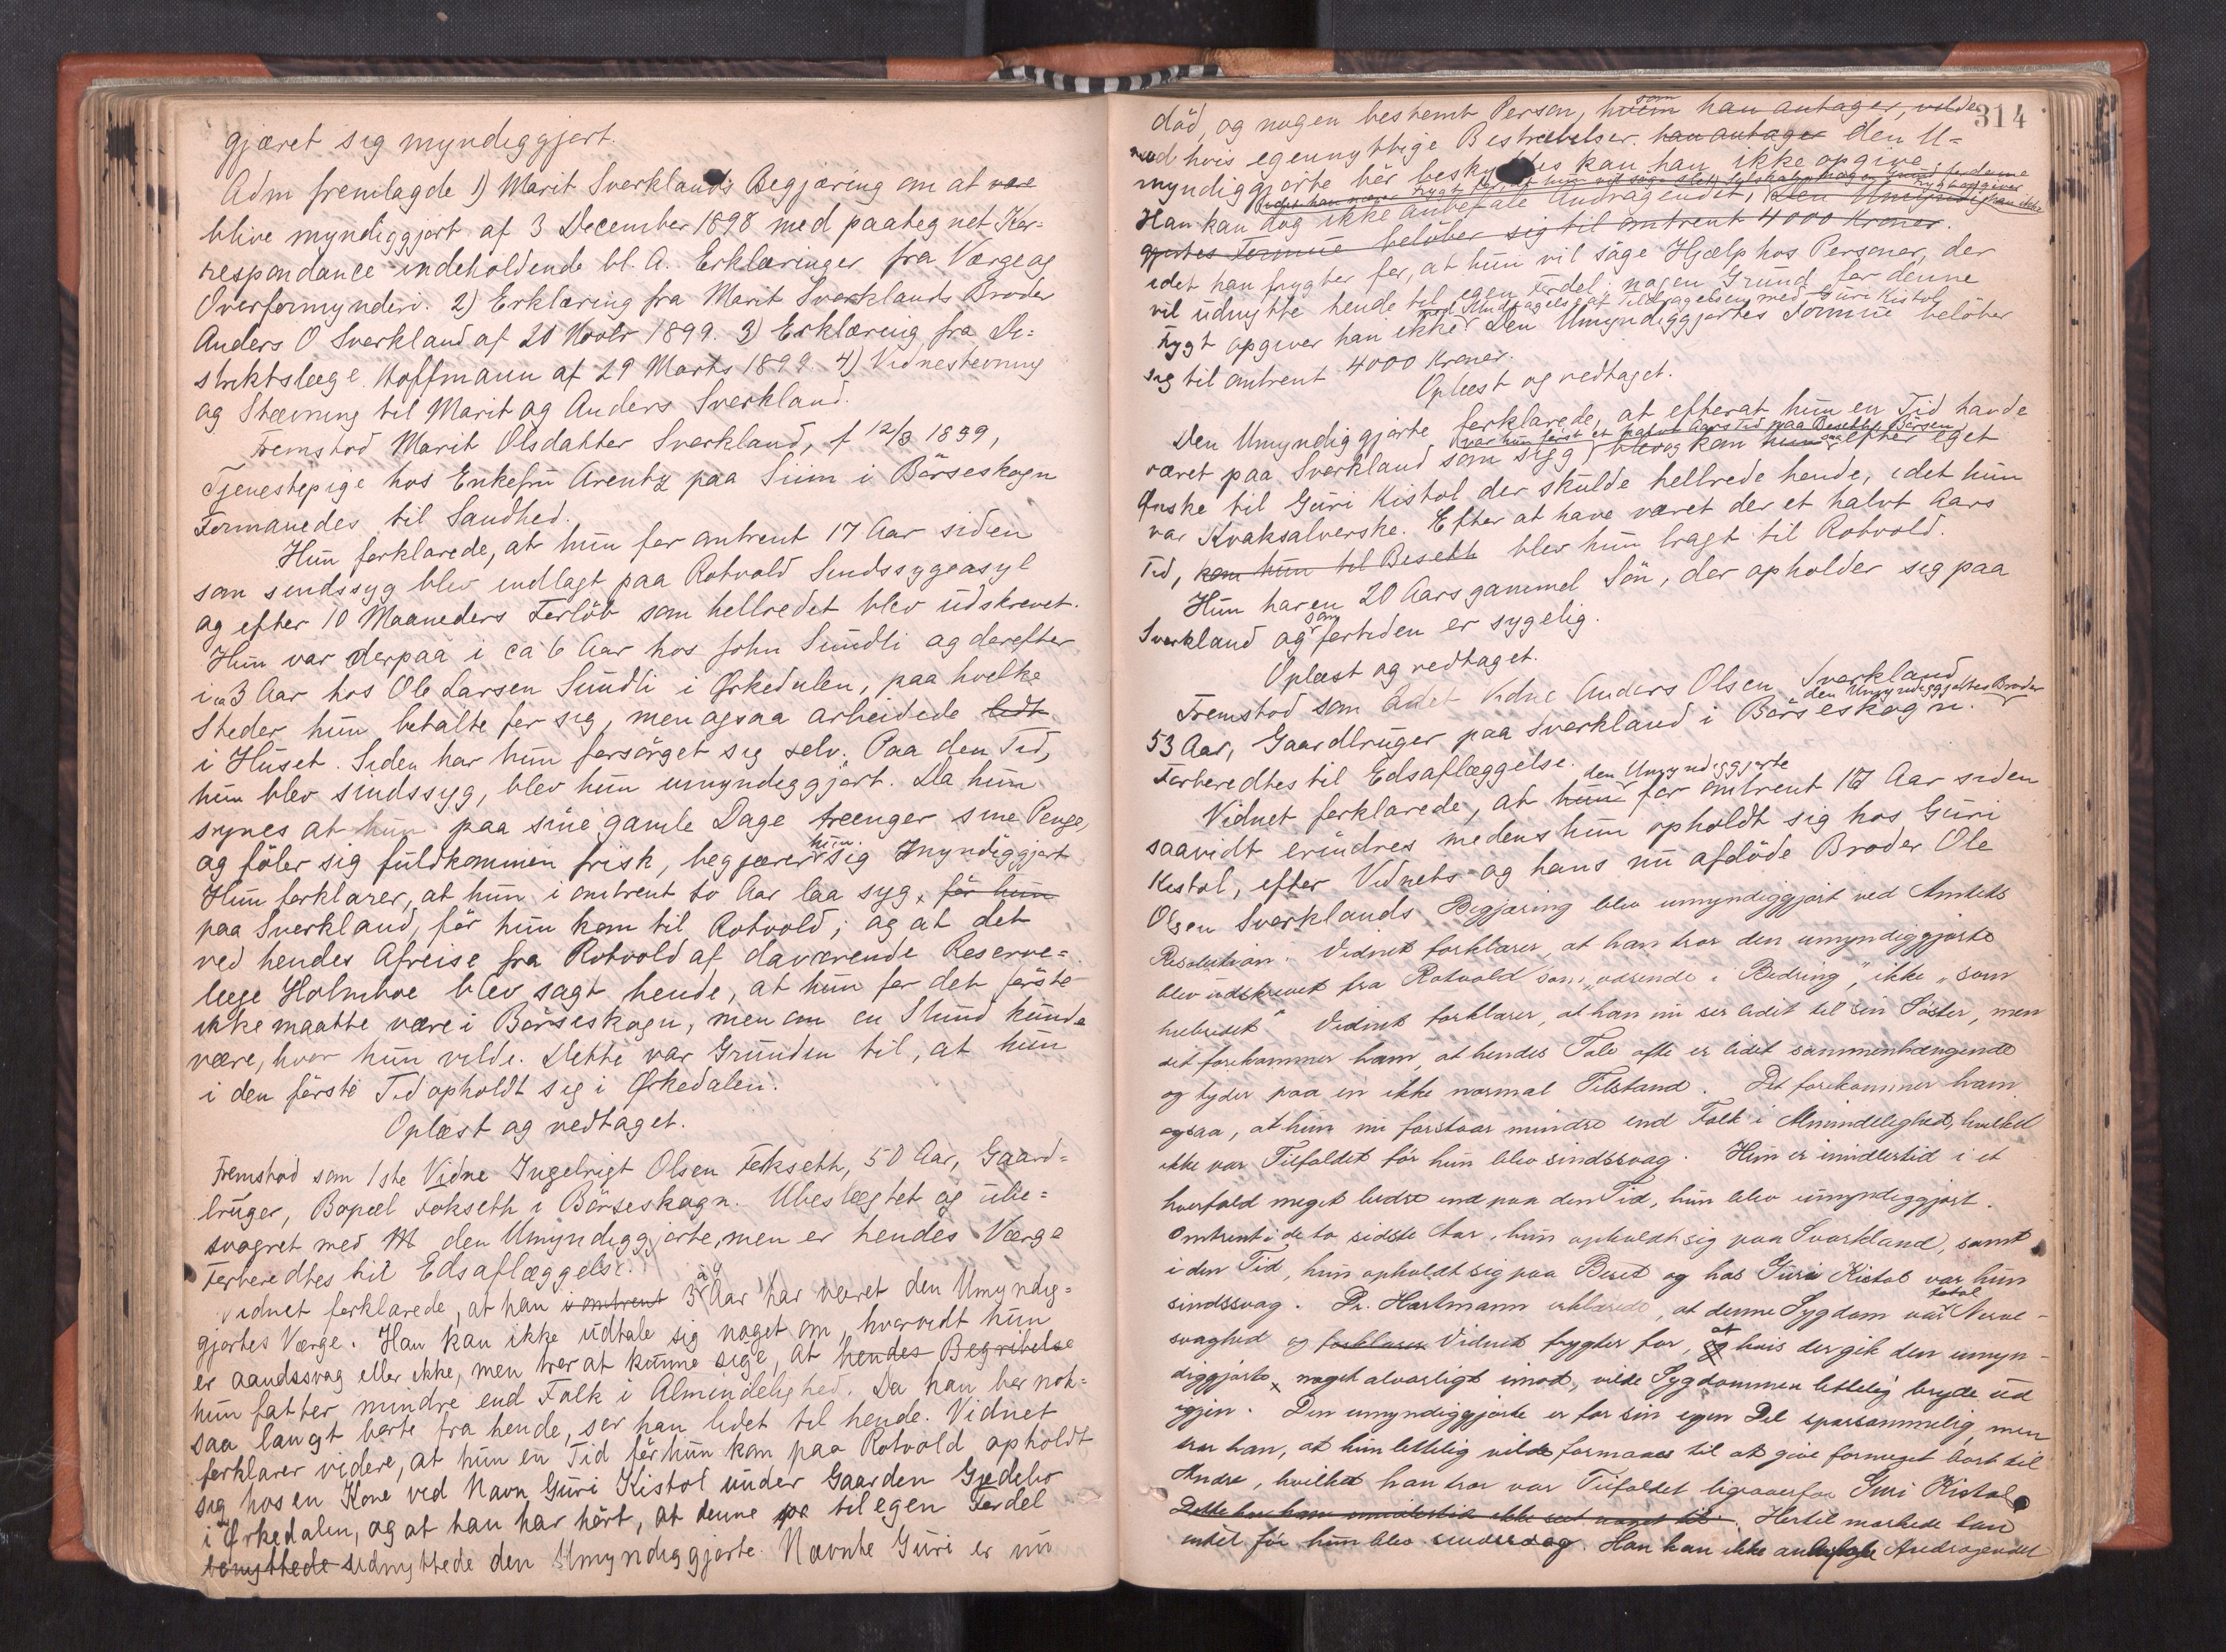 gjøret sig myndiggjort.
Adm fremlagde 1) Marit Sverklands Begjæring om at være
blive myndiggjort af 3 December 1898 med paategnet Kor-
respondance indeholdende bl. A. Erklæringer fra Værge og
Overformynderi. 2) Erklæring fra Marit Sverklands Broder
Anders O Sverkland af 20 Novbr 1899. 3) Erklæring fra Di-
striktslæge Hoffmann af 29 Marts 1899. 4) Vidnestevning
og Stævning til Marit og Anders Sverkland.
Fremstod Marit Olsdatter Sverkland, f 12/3 1859,
Tjenestepige hos Enkefru Arentz paa Siim i Börseskogn
Formanedes til Sandhed.
Hun forklarede, at hun for omtrent 17 Aar siden
som sindssyg blev indlagt paa Rotvold Sindssygeasyl
og efter 10 Maaneders Forlöb som hellredet blev udskrevet.
Hun var derpaa i ca 6 Aar hos John Sundli og derefter
i ca 3 Aar hos Ole Larsen Sundli i Ørkedalen, paa hvilke
Steder hun betalte for sig, men ogsaa arbeidede lidt
i Huset. Siden har hun forsörget sig selv. Paa den Tid,
hun blev sindssyg, blev hun umyndiggjort. Da hun
synes at hun paa sine gamle Dage trænger sine Penge,
og föler sig fuldkommen frisk, begjærer hun sig myndiggjort
Hun forklarer, at hun i omtrent to Aar laa syg, för hun
paa Sverkland, för hun kom til Rotvold; og at det
ved hendes Afreise fra Rotvold af daværende Reserve-
læge Holmboe blev sagt hende, at hun for det förste
ikke maatte være i Börseskogn, men om en Stund kunde
være, hvor hun vilde. Dette var Grunden til, at hun
i den förste Tid opholdt sig i Ørkedalen.
Oplæst og vedtaget.
Fremstod som 1ste Vidne Ingebrigt Olsen Fokseth, 50 Aar, Gaard-
bruger, Bopæl Fokseth i Börseskogn. Ubeslægtet og ube-
svogret med M den Umyndiggjorte, men er hendes Værge
Forberedtes til Edsaflæggelse.
Vidnet forklarede, at han i omtrent 3 à 4 Aar har været den Umyndig-
gjortes Værge. Han kan ikke udtale sig noget om, hvorvidt hun
er aandssvag eller ikke, men tror at kunne sige, at hendes Begribelse
hun fatter mindre end Folk i Almindelighed. Da han bor nok-
saa langt borte fra hende, ser han lidet til hende. Vidnet
forklarer videre, at hun en Tid för hun kom paa Rotvold opholdt
sig hos en Kone ved Navn Guri Kistol under Gaarden Gjedebo
i Ørkedalen, og at han har hört, at denne til egen Fordel
benyttede udnyttede den Umyndiggjorte. Nævnte Guri er nu
314
död, og nogen bestemt Person, hvem som han antager, vilde
mod hvis egennyttige Bestræbelser han antager den U-
myndiggjorte bör beskyttes kan han ikke opgive.
Han kan dog ikke anbefale Andragendet, Den Umyndig-
gjortes Formue belöber sig til omtrent 4000 Kroner.
idet han frygter for, at hun vil söge Hjælp hos Personer, der
vil udnytte hende til egen Fordel. nogen Grund for denne
Frygt opgiver han ikke med Undtagelse af Tildragelsen med Guri Kistol. Den Umyndiggjortes Formue belöber
sig til omtrent 4000 Kroner.
Oplæst og vedtaget.
Den Umyndiggjorte forklarede, at efterat hun en Tid havde
været paa Sverkland som syg var hun först et halvt Aars Tid paa Beseth i Börsen blev og kom hun efter eget
Ønske til Guri Kistol der skulde hellrede hende, idet hun
var Kvaksalverske. Efter at have været der et halvt Aars
Tid, kom hun til Beseth blev hun bragt til Rotvold.
Hun har en 20 Aars gammel Sön, der opholder sig paa
Sverkland og som fortiden er sygelig.
Oplæst og vedtaget.
Fremstod som Andet Vidne Anders Olsen Sverkland
53 Aar, Gaardbruger paa Sverkland i Börseskogn. den Umyndiggjortes Broder
Forberedtes til Edsaflæggelse.
Vidnet forklarede, at hun den Umyndiggjorte for omtrent 17 Aar siden
saavidt erindres medens hun opholdt sig hos Guri
Kistol, efter Vidnets og hans nu afdöde Broder Ole
Olsen Sverklands Begjæring blev umyndiggjort ved Amtets
Resolution. Vidnet forklarer, at han tror den umyndiggjorte
blev udskrevet fra Rotvold som „værende i Bedring", ikke „som
helbredet". Vidnet forklarer, at han nu ser lidet til sin Söster, men
det forekommer ham, at hendes Tale ofte er lidet sammenhængende
og tyder paa en ikke normal Tilstand. Det forekommer ham
ogsaa, at hun nu forstaar mindre end Folk i Almindelighed, hvilket
ikke var Tilfældet för hun blev sindssvag. Hun er imidlertid i et
hvertfald meget bedre end paa den Tid, hun blev umyndiggjort.
Omtrent i de to sidste Aar, hun opholdt sig paa Sverkland, samt
i den Tid, hun opholdt sig paa Beset og hos Guri Kistol var hun
sindssvag. Dr. Hartmann erklærede, at denne Sygdom var total Nerve-
svaghed og forklarer Vidnet frygter for, at hvis der gik den umyn-
diggjorte noget alvorligt imod, vilde Sygdommen lettelig bryde ud
igjen. Den umyndiggjorte er for sin egen Del sparsommelig, men
tror han, at hun lettelig vilde formaaes til at give formeget bort til
Andre, hvilket han tror var Tilfældet ligeoverfor Guri Kistol
Dette har han imidlertid ikke seet noget til. Hertil mærkede han
intet för hun blev sindssvag. Han kan ikke anbefale Andragendet